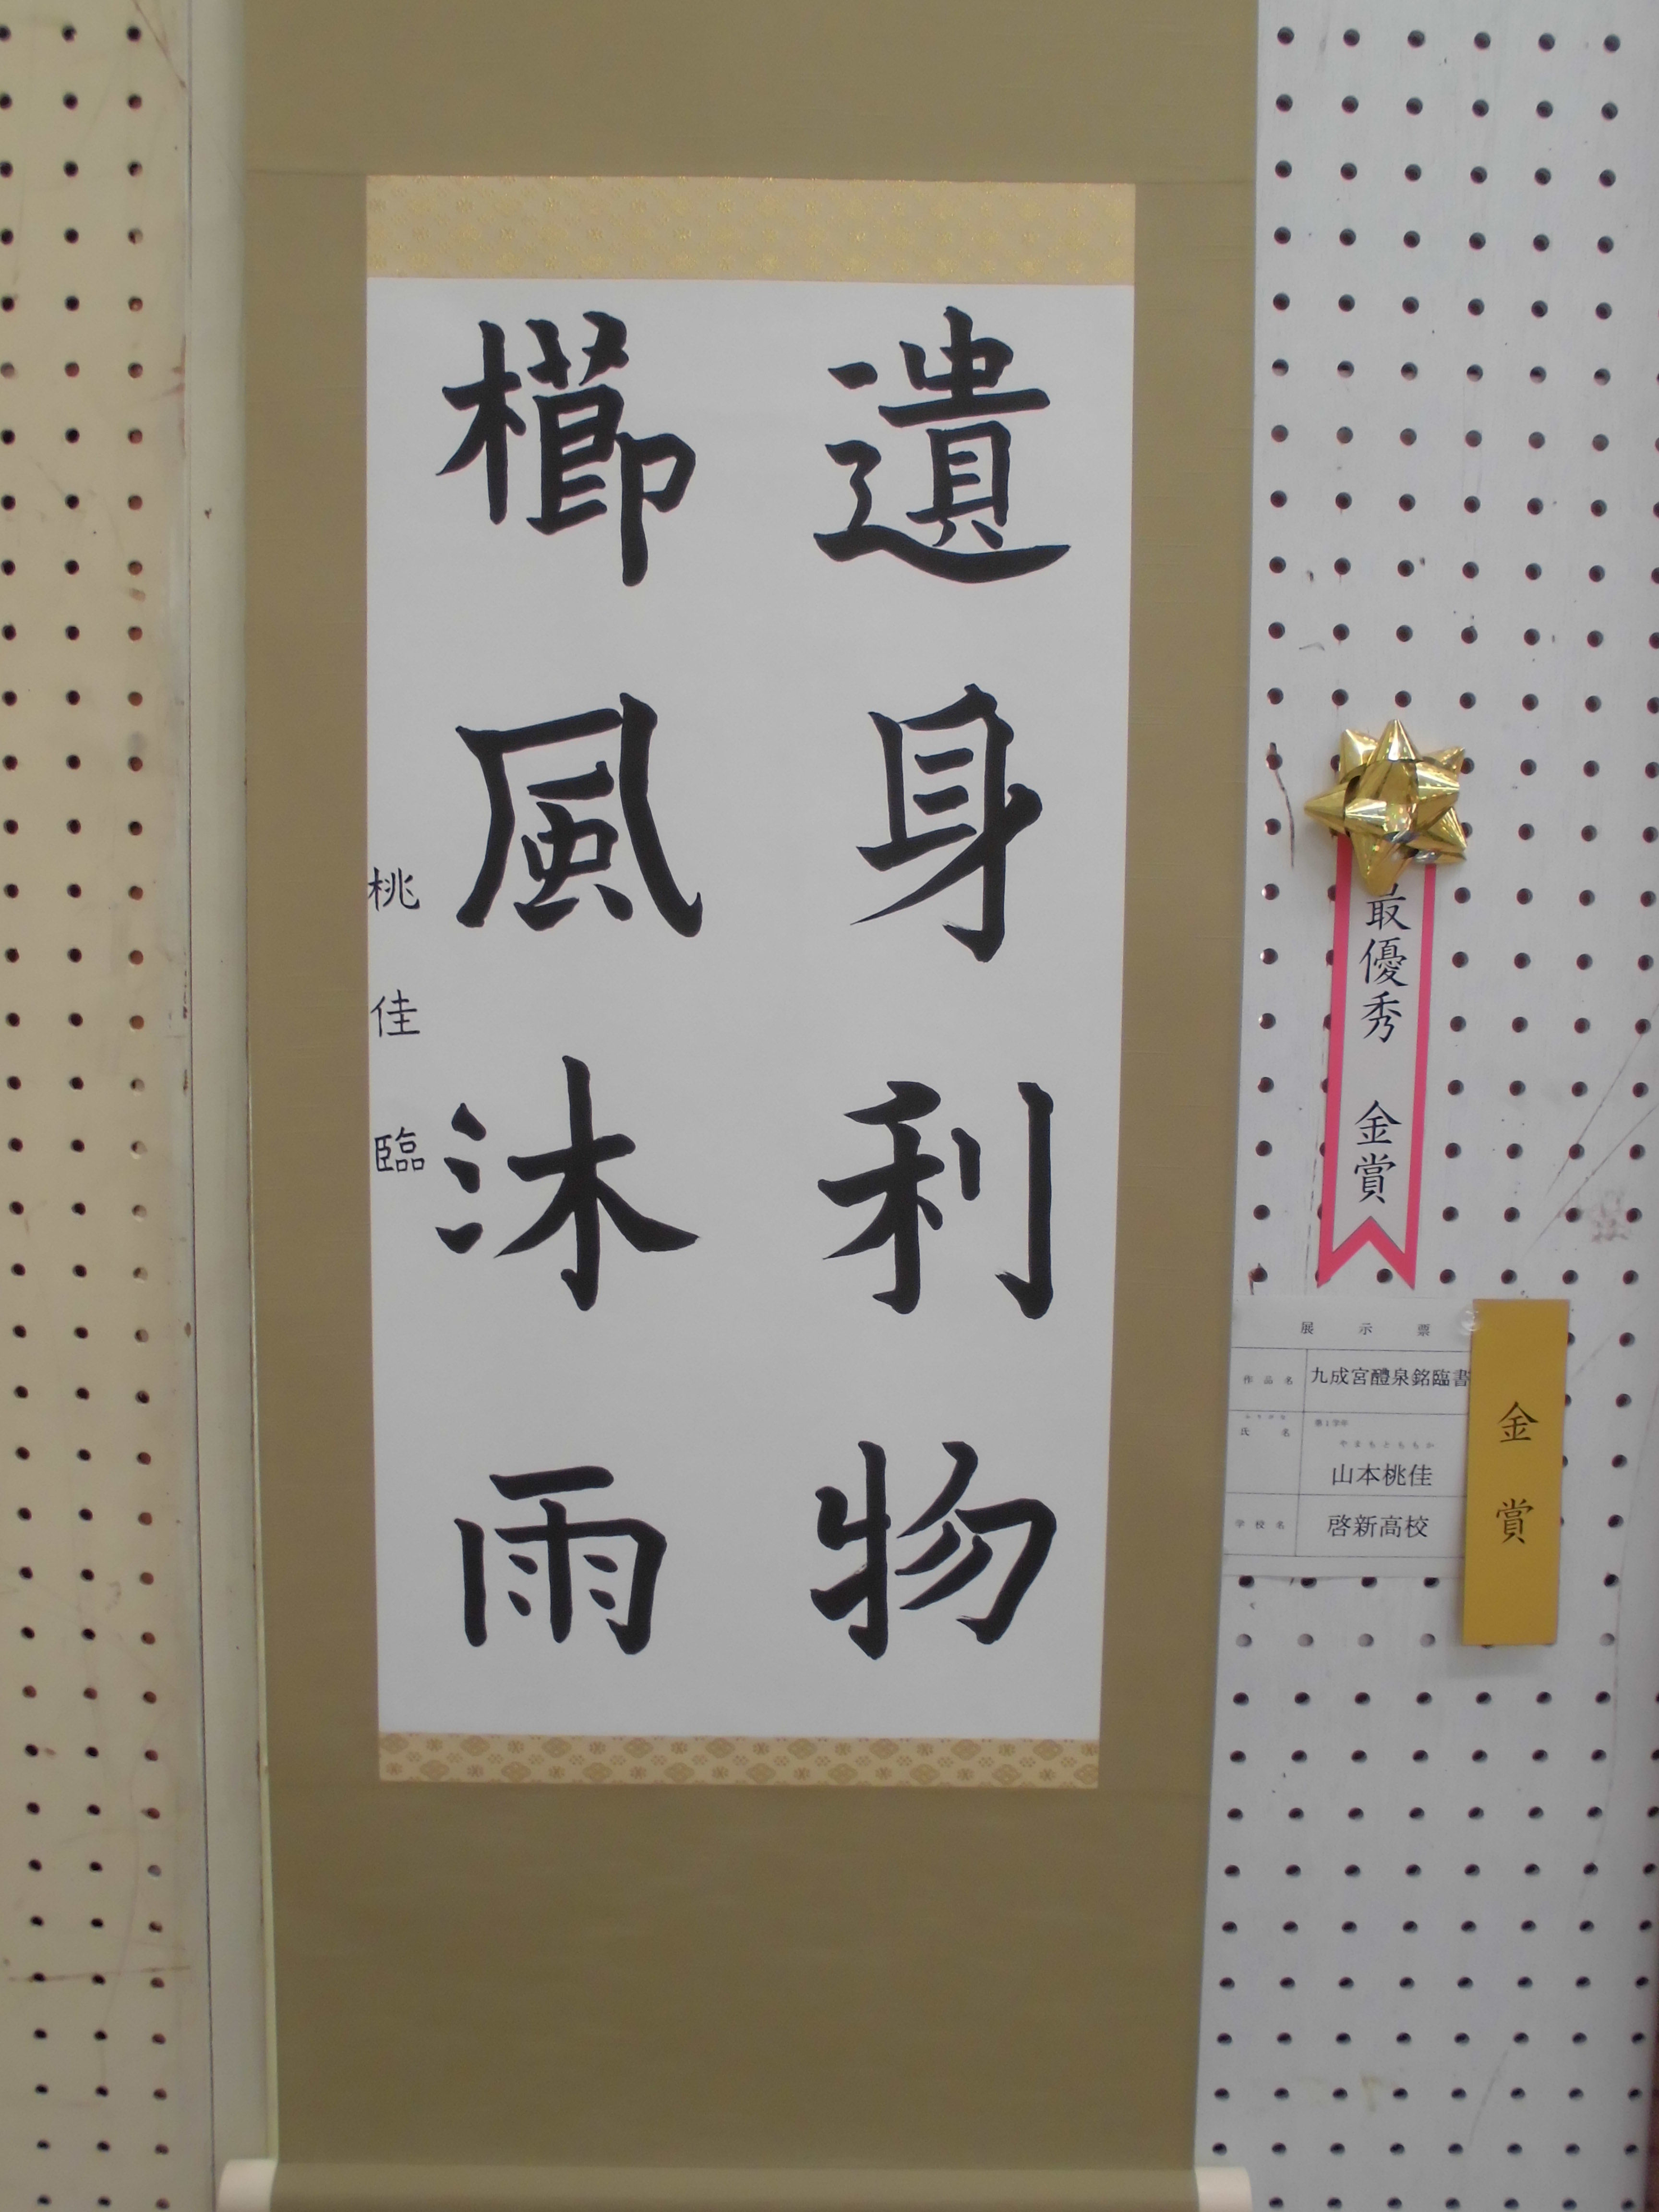 遺身利物
櫛風沐雨
桃佳臨
最優秀 金賞
展示票
作品名 九成宮醴泉銘臨書
ふりがな
氏名 第1学年
やまもとももか
山本桃佳
学校名 啓新高校
金賞